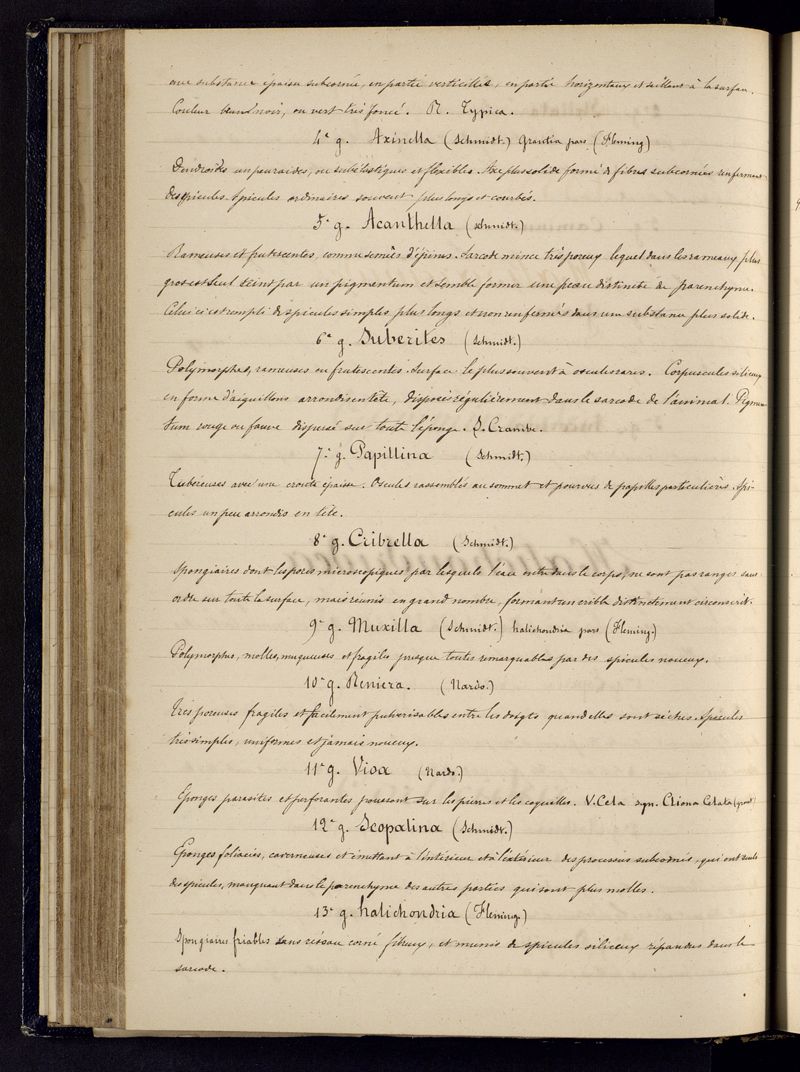 une substance épaisse subcornée, en partie verticillés, en partie horizontaux et saillant à la surface.
Couleur noir, ou vert très foncé. R. Typica.
4e g. Axinella (Schmidt.) Grantia pars (Fleming)
Dendroïdes un peu raides, ou subélastiques et flexibles. Axe plus solide formé de fibres subcornées renfermant
des spicules. Spicules ordinaires souvent plus longs et courbés.
5e g. Acanthella (Schmidt.)
Rameuses et frutescentes, comme semées d'épines. Sarcode mince très poreux lequel dans les rameaux plus
gros est seul teint par un pigmentum et semble former une peau distincte du parenchyme.
Celui ci est rempli de spicules simples, plus longs et non renfermés dans une substance plus solide.
6e g. Suberites (Schmidt.)
Polymorphes, rameuses ou frutescentes. Surface le plus souvent à oscules rares. Corpuscules siliceux
en forme d'aiguillons arrondis en tête, disposés régulièrement dans le sarcode de l'animal. Pigmen-
tum rouge ou fauve dispersé sur toute l'éponge. S. Crambe.
7e g. Papillina (Schmidt.)
Tubéreuses avec une croute épaisse. Oscules rassemblés au sommet et pourvus de papilles particulières. Spi-
cules un peu arrondis en tête.
8e g. Cribrella (Schmidt.)
Spongiaires dont les pores microscopiques par lesquels l'eau entre dans le corps, ne sont pas rangés sans
ordre sur toute la surface, mais réunis en grand nombre, formant un crible distinctement circonscrit.
9e g. Muxilla (Schmidt.) halichondria pars (Fleming.)
Polymorphes, molles, muqueuses et fragiles presque toutes remarquables par des spicules noueux.
10e g. Reniera. (Nardo.)
Très poreuses, fragiles et facilement pulvérisables entre les doigts quand elles sont sèches. Spicules
très simples, uniformes et jamais noueux.
11e g. Vioa (Nardo.)
Eponges parasites et perforantes poussant sur les pierres et les coquilles. V. Cela syn. Cliona Celata (grant)
12e g. Scopalina (Schmidt.)
Eponges foliacées, caverneuses et émettant à l'intérieur et à l'extérieur des processus subcornés, qui ont seuls
des spicules, manquant dans le parenchyme des autres parties qui sont plus molles.
13e g. halichondria (Fleming.)
Spongiaires friables sans réseau corné fibreux, et munis de spicules siliceux répandus dans le
sarcode.